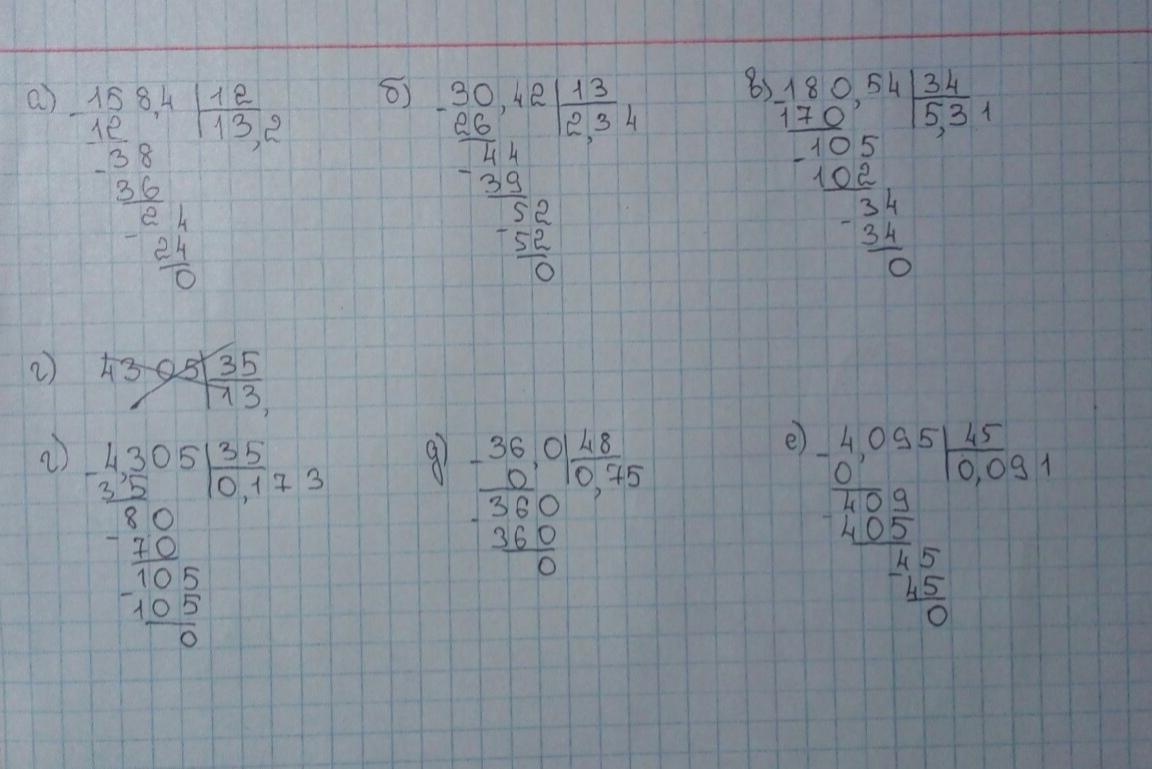 а) -158,4 | 12
12 | 13,2
-38
36
-24
24
0
б) -30,42 | 13
26 | 2,34
-44
39
-52
52
0
в) -180,54 | 34
170 | 5,31
-105
102
-34
34
0
г) 4305 | 35
13,
г) -4,305 | 35
35 | 0,173
-80
70
-105
105
0
д) -36,0 | 48
0 | 0,75
-360
360
0
е) -4,095 | 45
0 | 0,091
-409
405
-45
45
0